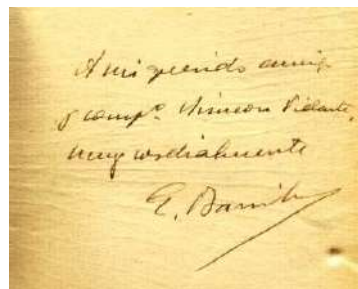 A mi querido amigo
y compº. Simeon Vidarte,
muy cordialmente